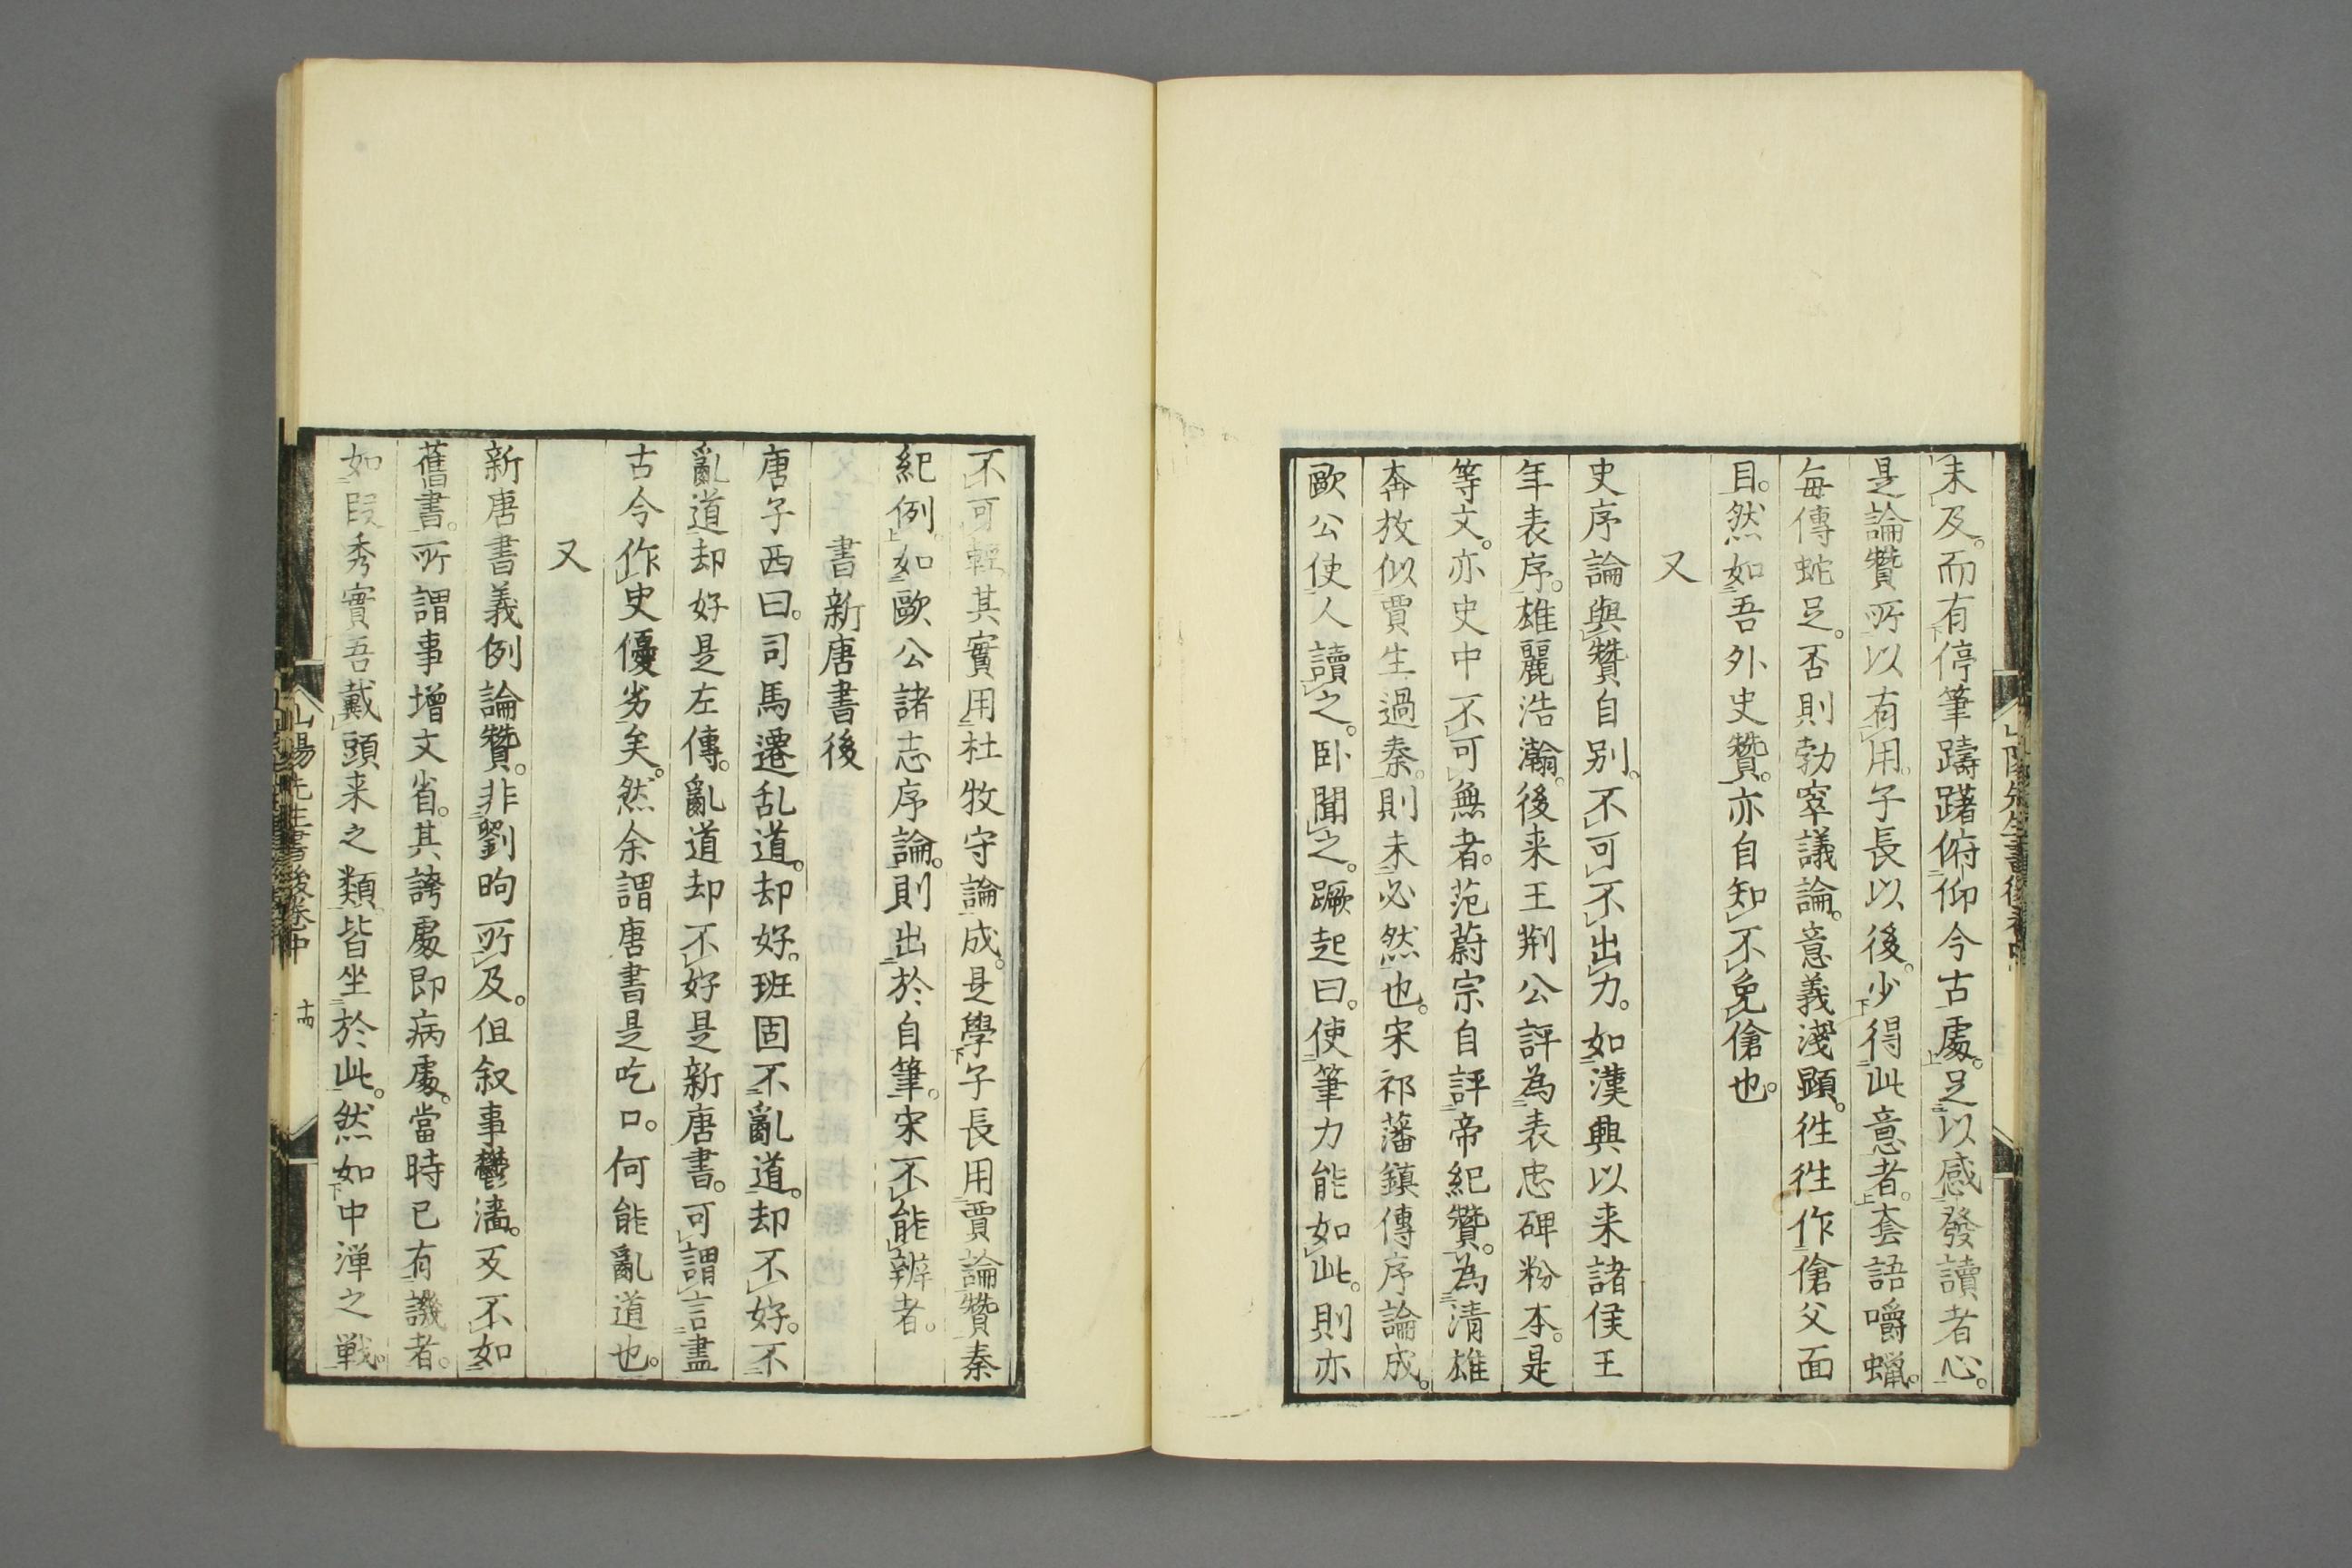 未及。而有停筆躊躇俯仰今古處。足以感發讀者心。
是論贊所以有用。子長以後。少得此意者。套語嚼蠟。
每傳蛇足。否則勃窣議論。意義淺顕。徃徃作傖父面
目。然如吾外史贊。亦自知不免傖也。
又
史序論與贊自別。不可不出力。如漢興以来諸侯王
年表序。雄麗浩瀚。後来王荆公評為表忠碑粉本。是
等文。亦史中不可無者。范蔚宗自評帝紀贊。為清雄
奔放似賈生過秦。則未必然也。宋祁藩鎮傳序論成。
歐公使人讀之。卧聞之。蹶起曰。使筆力能如此。則亦
不可輕其實用杜牧守論成。是學子長用賈論贊秦
紀例。如歐公諸志序論。則出於自筆。宋不能辨者。
書新唐書後
唐子西曰。司馬遷乱道。却好。班固不亂道。却不好。不
亂道却好是左傳。亂道却不好是新唐書。可謂言盡
古今作史優劣矣。然余謂唐書是吃口。何能亂道也。
又
新唐書義例論贊。非劉昫所及。但叙事鬱濇。反不如
舊書。所謂事增文省。其誇處即病處。當時已有譏者。
如段秀實吾戴頭来之類。皆坐於此。然如中渾之戦。
山陽先生書後卷中 十四